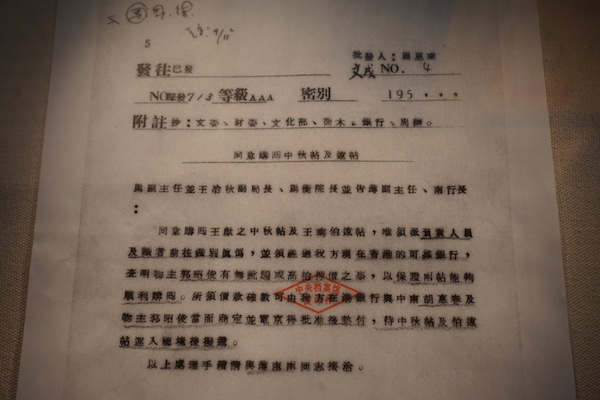 5
發往已發
批發人：周恩來
NO. 4
713 等級AAA 密別 195
附註 抄：文委、財委、文化部、喬木、銀行、周辦。
同意購回中秋帖及遠帖
馬副主任並王冶秋副局長、馬衡院長並告薄副主任、南行長
：
同意購回王獻之中秋帖及王珣伯遠帖，唯須派負責人員
及識者前往鑑別真偽，並須經過我方現在香港的可靠銀行，
查明物主郭昭俊有無押買或高抬押價之事，以保證兩帖能夠
順利購回。所須價款確數可由我方在港銀行與中南胡惠春及
物主郭昭俊當面商定並電京得批准後墊付，待中秋帖及伯遠
帖運入國境後撥還。
以上處理手續請與薄南兩同志接洽。
中央档案馆